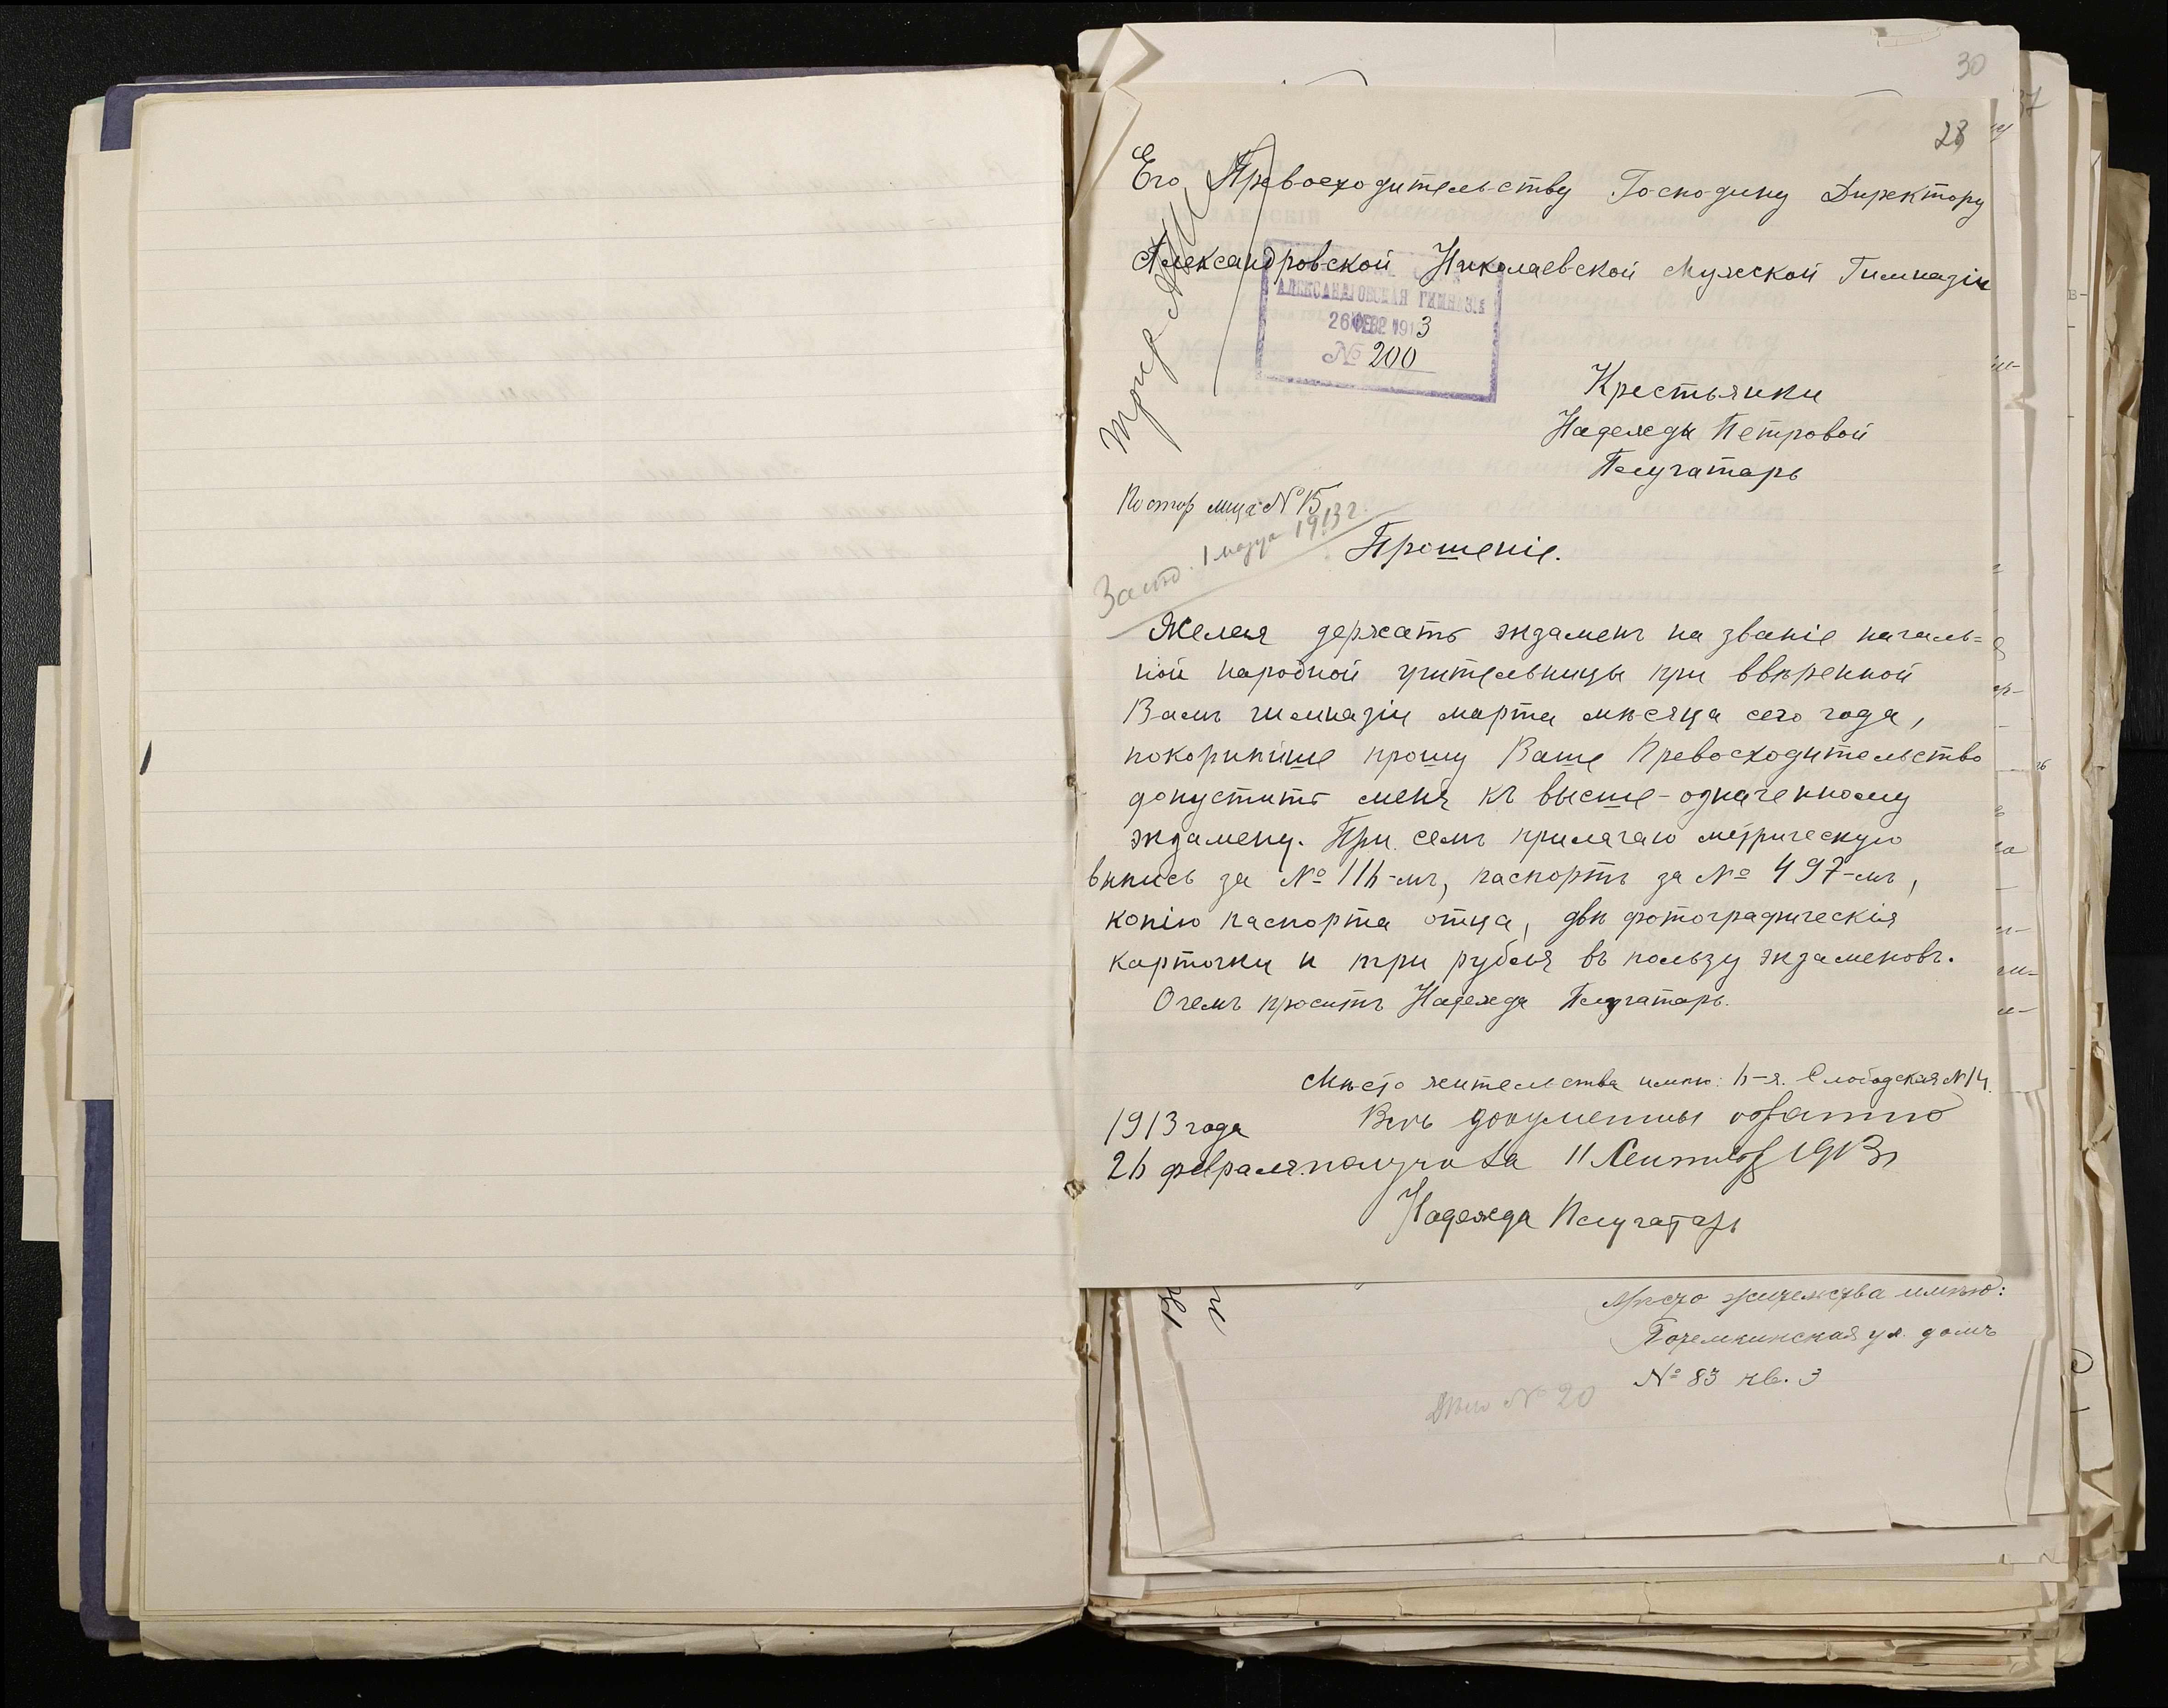 30
28
Его Превосходительству Господину Директору
Александровской Николаевской Мужской Гимназіи
АЛЕКСАНДРОВСКАЯ ГИМНАЗІЯ
26 ФЕВР 1913
№ 200
Крестьянки
Надежды Петровой
Плугатарь
Постор лица № 15
1 марта 1913 г.
Прошеніе.
Желая держать экзаменъ на званіе началь=
ной народной учительницы при ввѣренной
Вамъ гимназіи марта мѣсяца сего года,
покорнѣйше прошу Ваше Превосходительство
допустить меня къ высше-означенному
экзамену. При семъ прилагаю метрическую
выпись за № 116-мъ, паспортъ за № 497-мъ,
копію паспорта отца, двѣ фотографическія
карточки и три рубля въ пользу экзаменовъ.
О чемъ проситъ Надежда Плугатарь.
Мѣсто жительства имѣю: 6-я. Слободская № 14.
1913 года
Всѣ документы обратно
26 февраля.
получила 11 Сентября 1913 г
Надежда Плугатарь
Мѣсто жительства имѣю:
Потемкинская ул. домъ
№ 83 кв. 3
Дѣло № 20